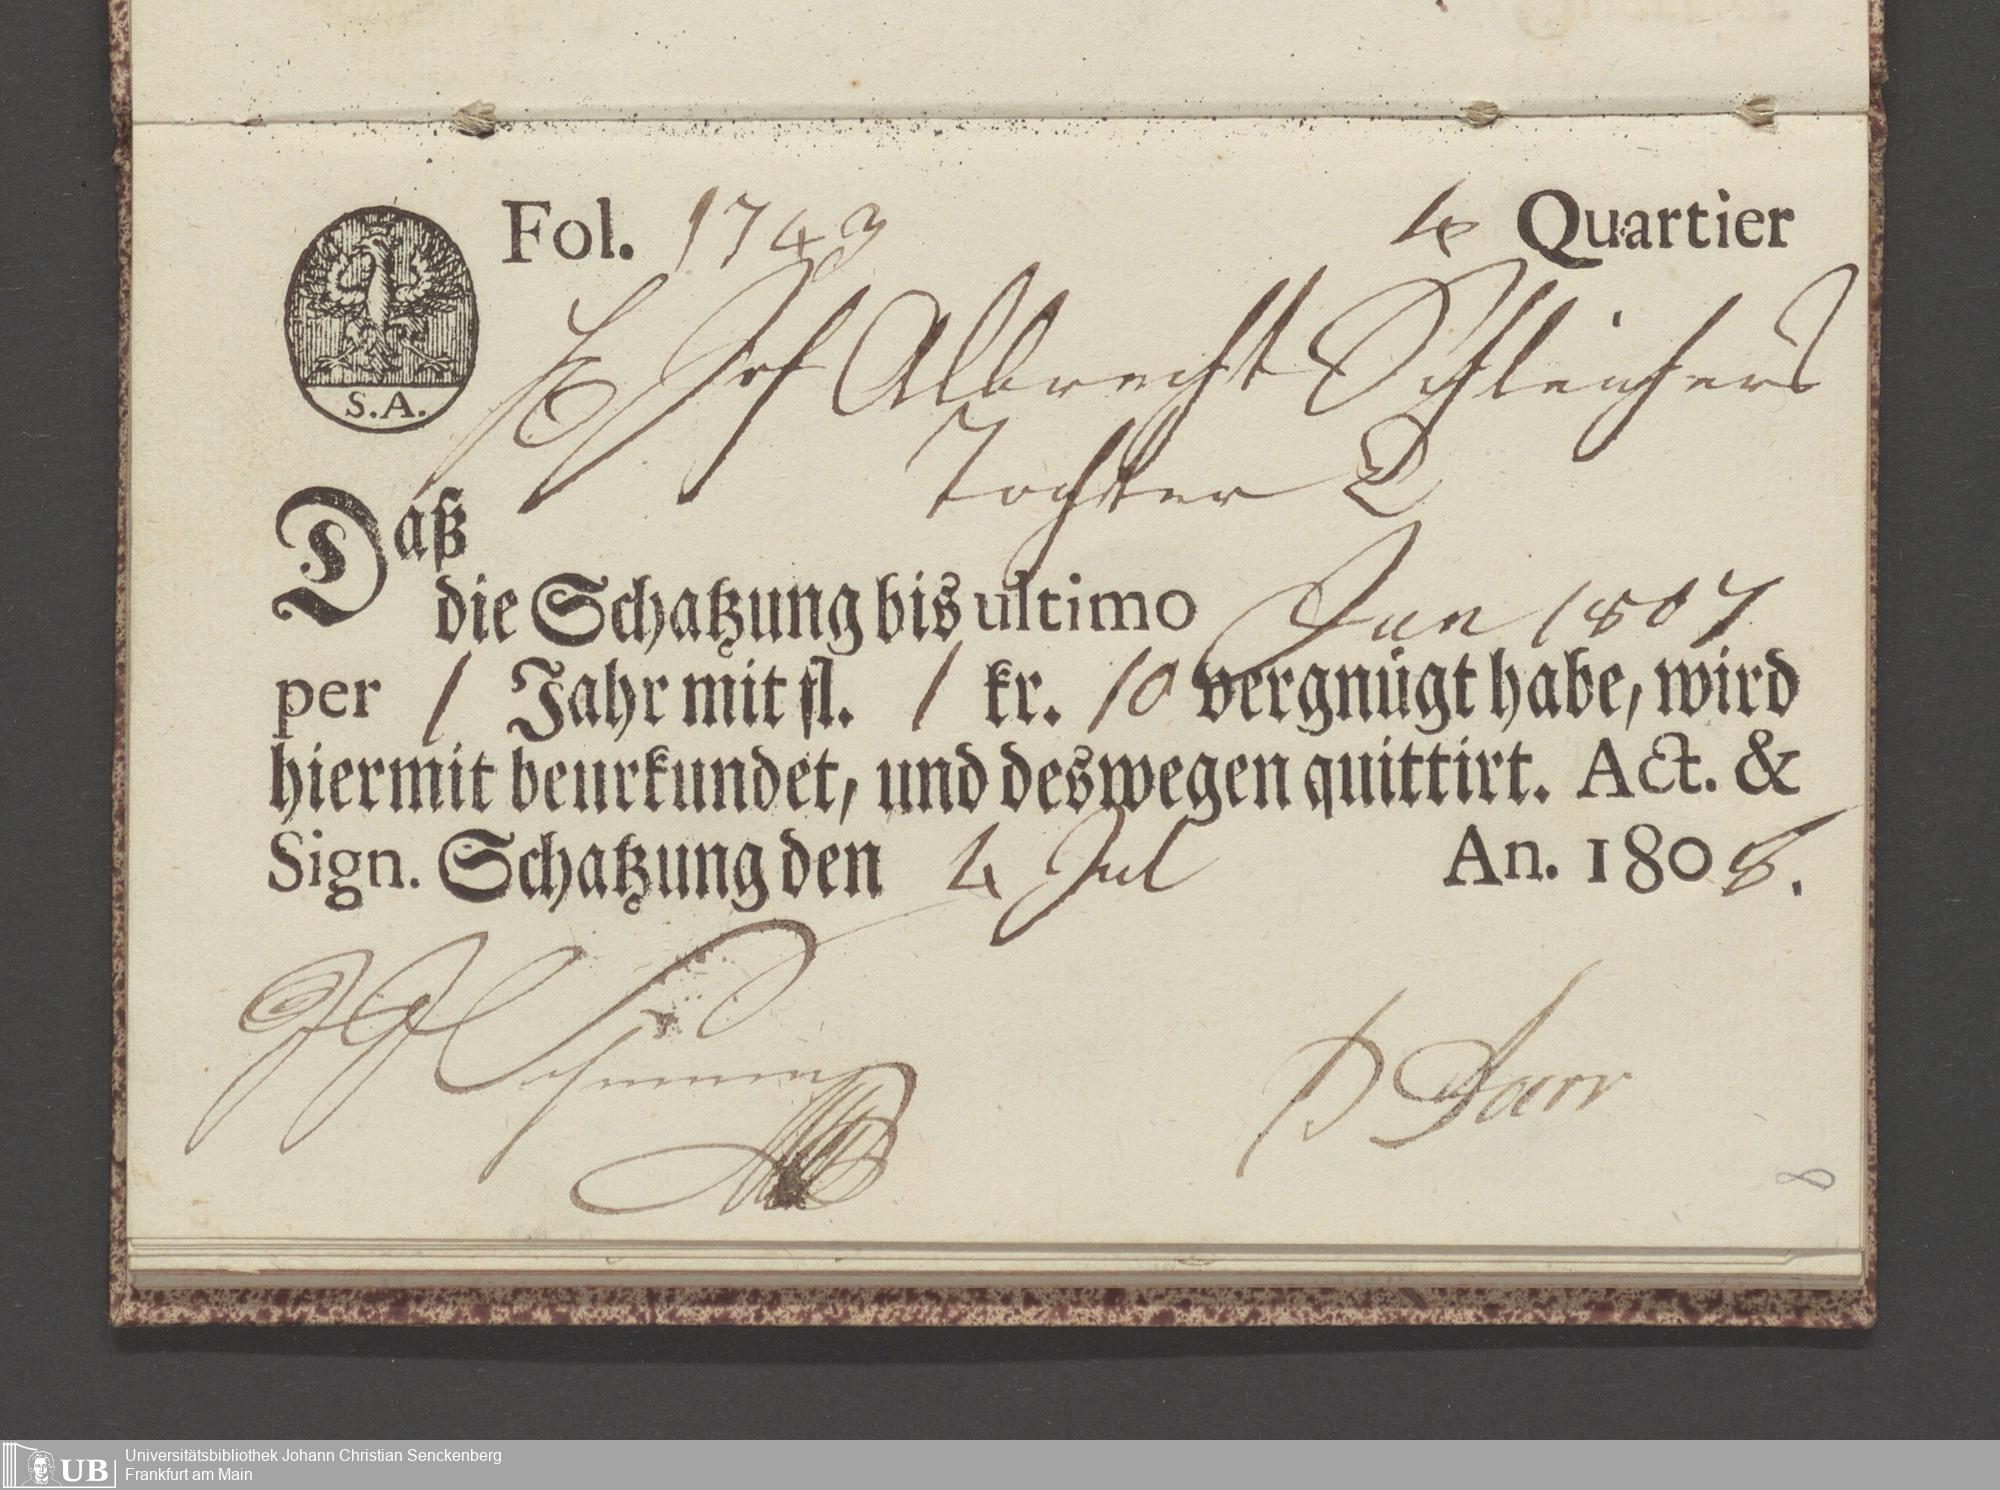 Fol. 1743 4 Quartier
Albrecht Schleichers
S.A.
Tochter
Daß
die Schatzung bis ultimo Jun 1807
per 1 Jahr mit fl. 1 kr. 10 vergnügt habe, wird
hiermit beurkundet, und deswegen quittirt. Act. &
Sign. Schatzung den 4 Jul An. 1808.
8
UB
Universitätsbibliothek Johann Christian Senckenberg
Frankfurt am Main